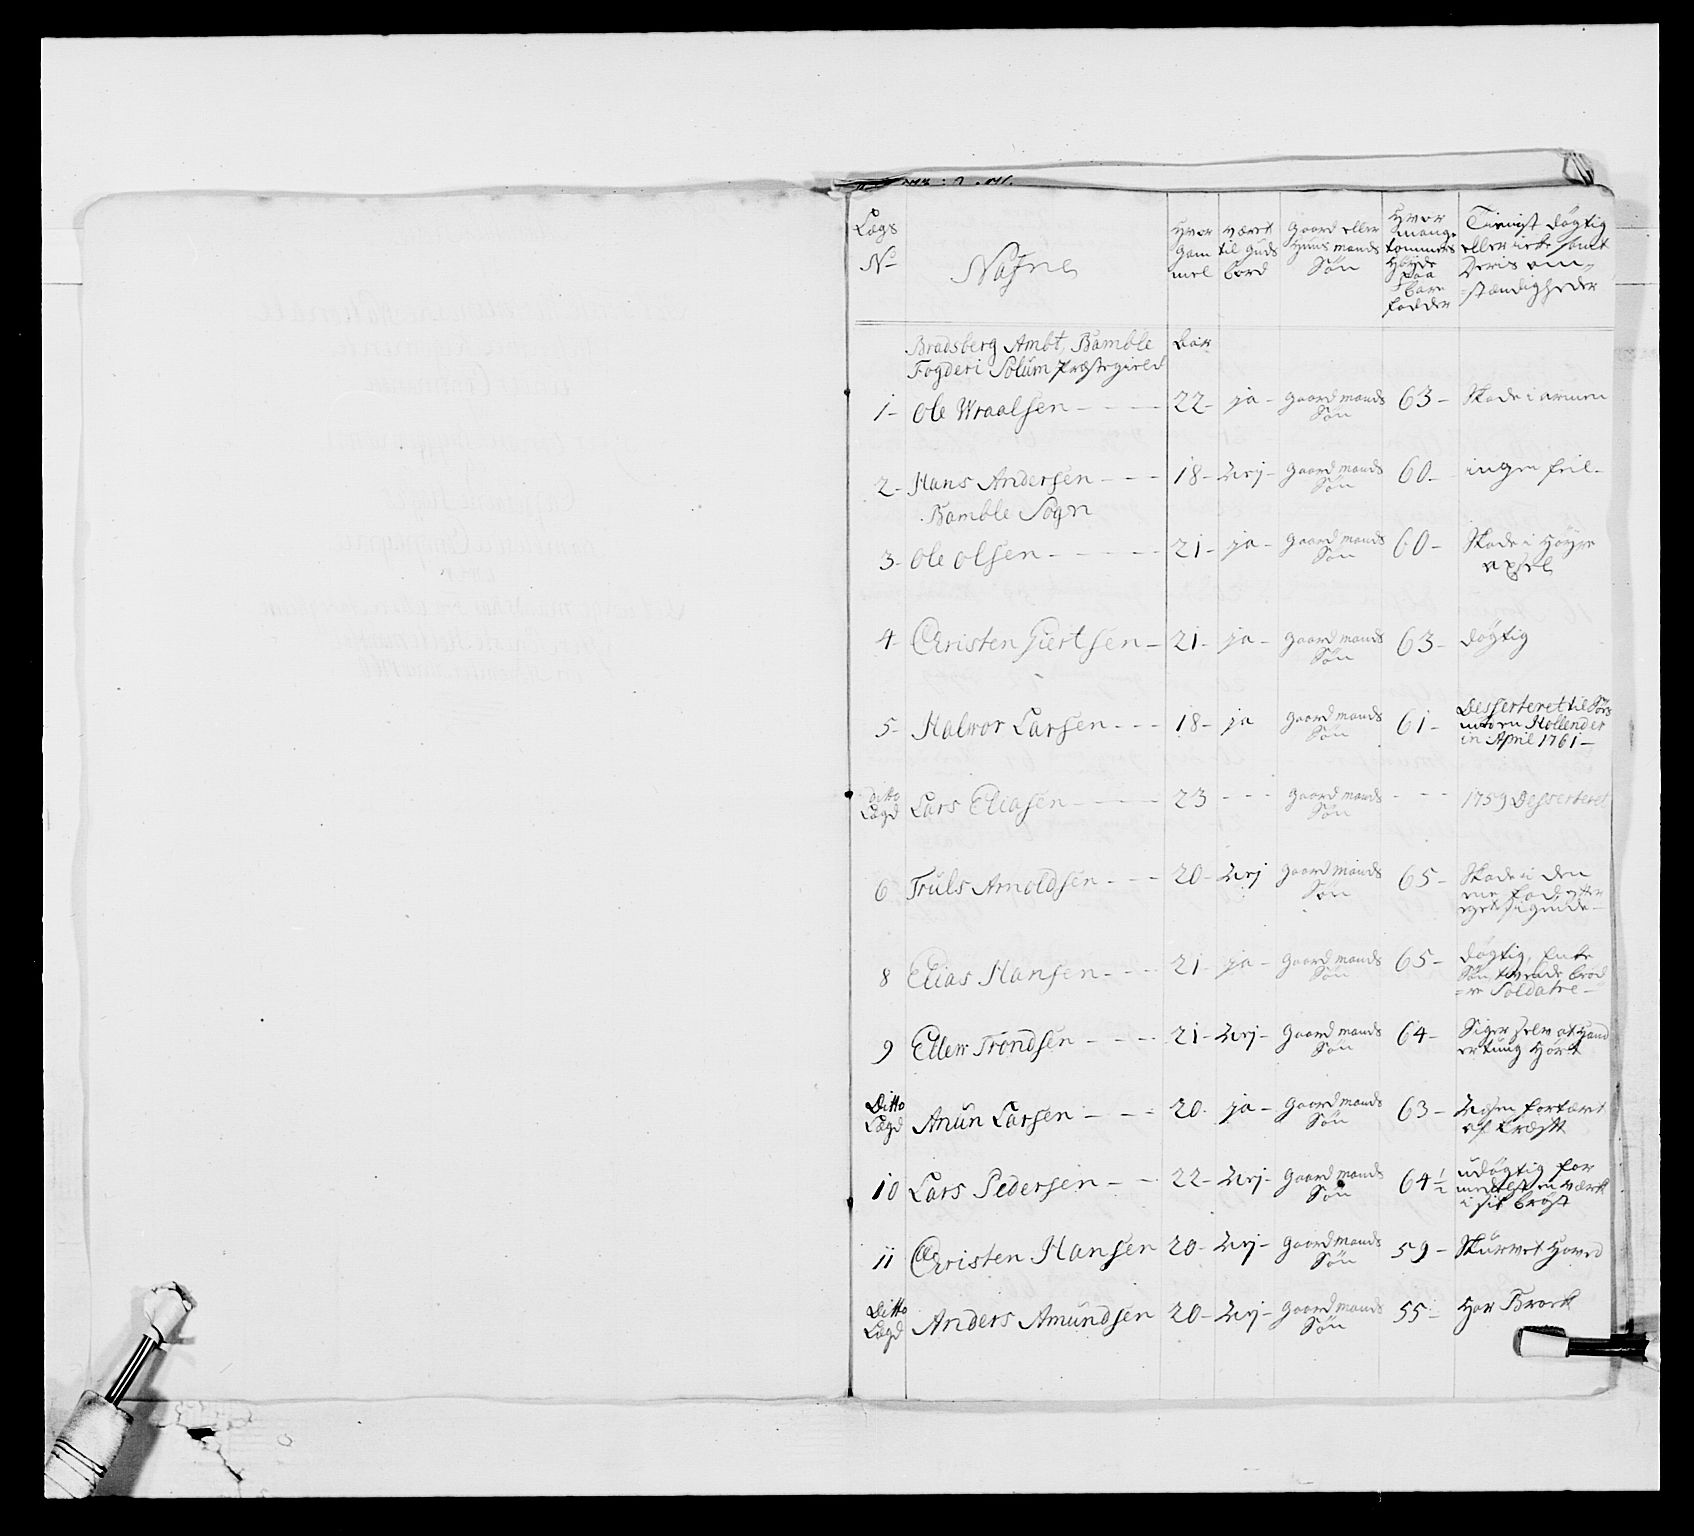 Lægs No Nafne Hvor Gammel været til Guds bord Gaard eller Huus mands Søn Hvor mange tommers Høyde paa bare fødder Tienist døgtig eller icke samt Deris omstændigheder
Bradsberg Ambt, Bamble
Fogderi Solum Præstegield
1- Ole Wraalsen - - - - 22- ja- gaard mands Søn 63- Skade i armen
2- Hans Andersen - - - 18- Nej- gaard mands Søn 60- ingen feil-
Bamble Sogn
3- Ole Olsen - - - - 21- ja- gaard mands Søn 60- Skade i Høyre axsel
4- Christen Giertsen - 21- ja- gaard mands Søn 63- døgtig
5- Halwor Larsen - - - 18- ja gaard mands Søn 61- Desserteret til Søes Hollender in April 1761-
ditto Lægd Lars Eliasen - - - - 23 - - - gaard mands Søn - - - 1759 Desserteret
6 Truls Arnoldsen - - - 20- Nej gaard mands Søn 65- Skade i den ene fod, efter eget sigende-
8 Elias Hansen - - - 21- ja- gaard mands Søn 65- døgtig, Enke Søn, tvende brødre Soldatre-
9 Ellew Trondsen - - - - 21- Nej- gaard mands Søn 64- Siger selv at Hand er tung Hørt
Ditto Lægd Anun Larsen - - - 20- ja- gaard mands Søn 63- Nesen fortært af kræft
10 Lars Pedersen - - 22- Nej- gaard mands Søn 64 1/2 udøgtig for medelst en værk i sit brøst
11 Christen Hansen 20- Nej- gaard mands Søn 59- Skurvet Hoved
Ditto Lægd Anders Amundsen 20- Nej- gaard mands Søn 55- Har Brock